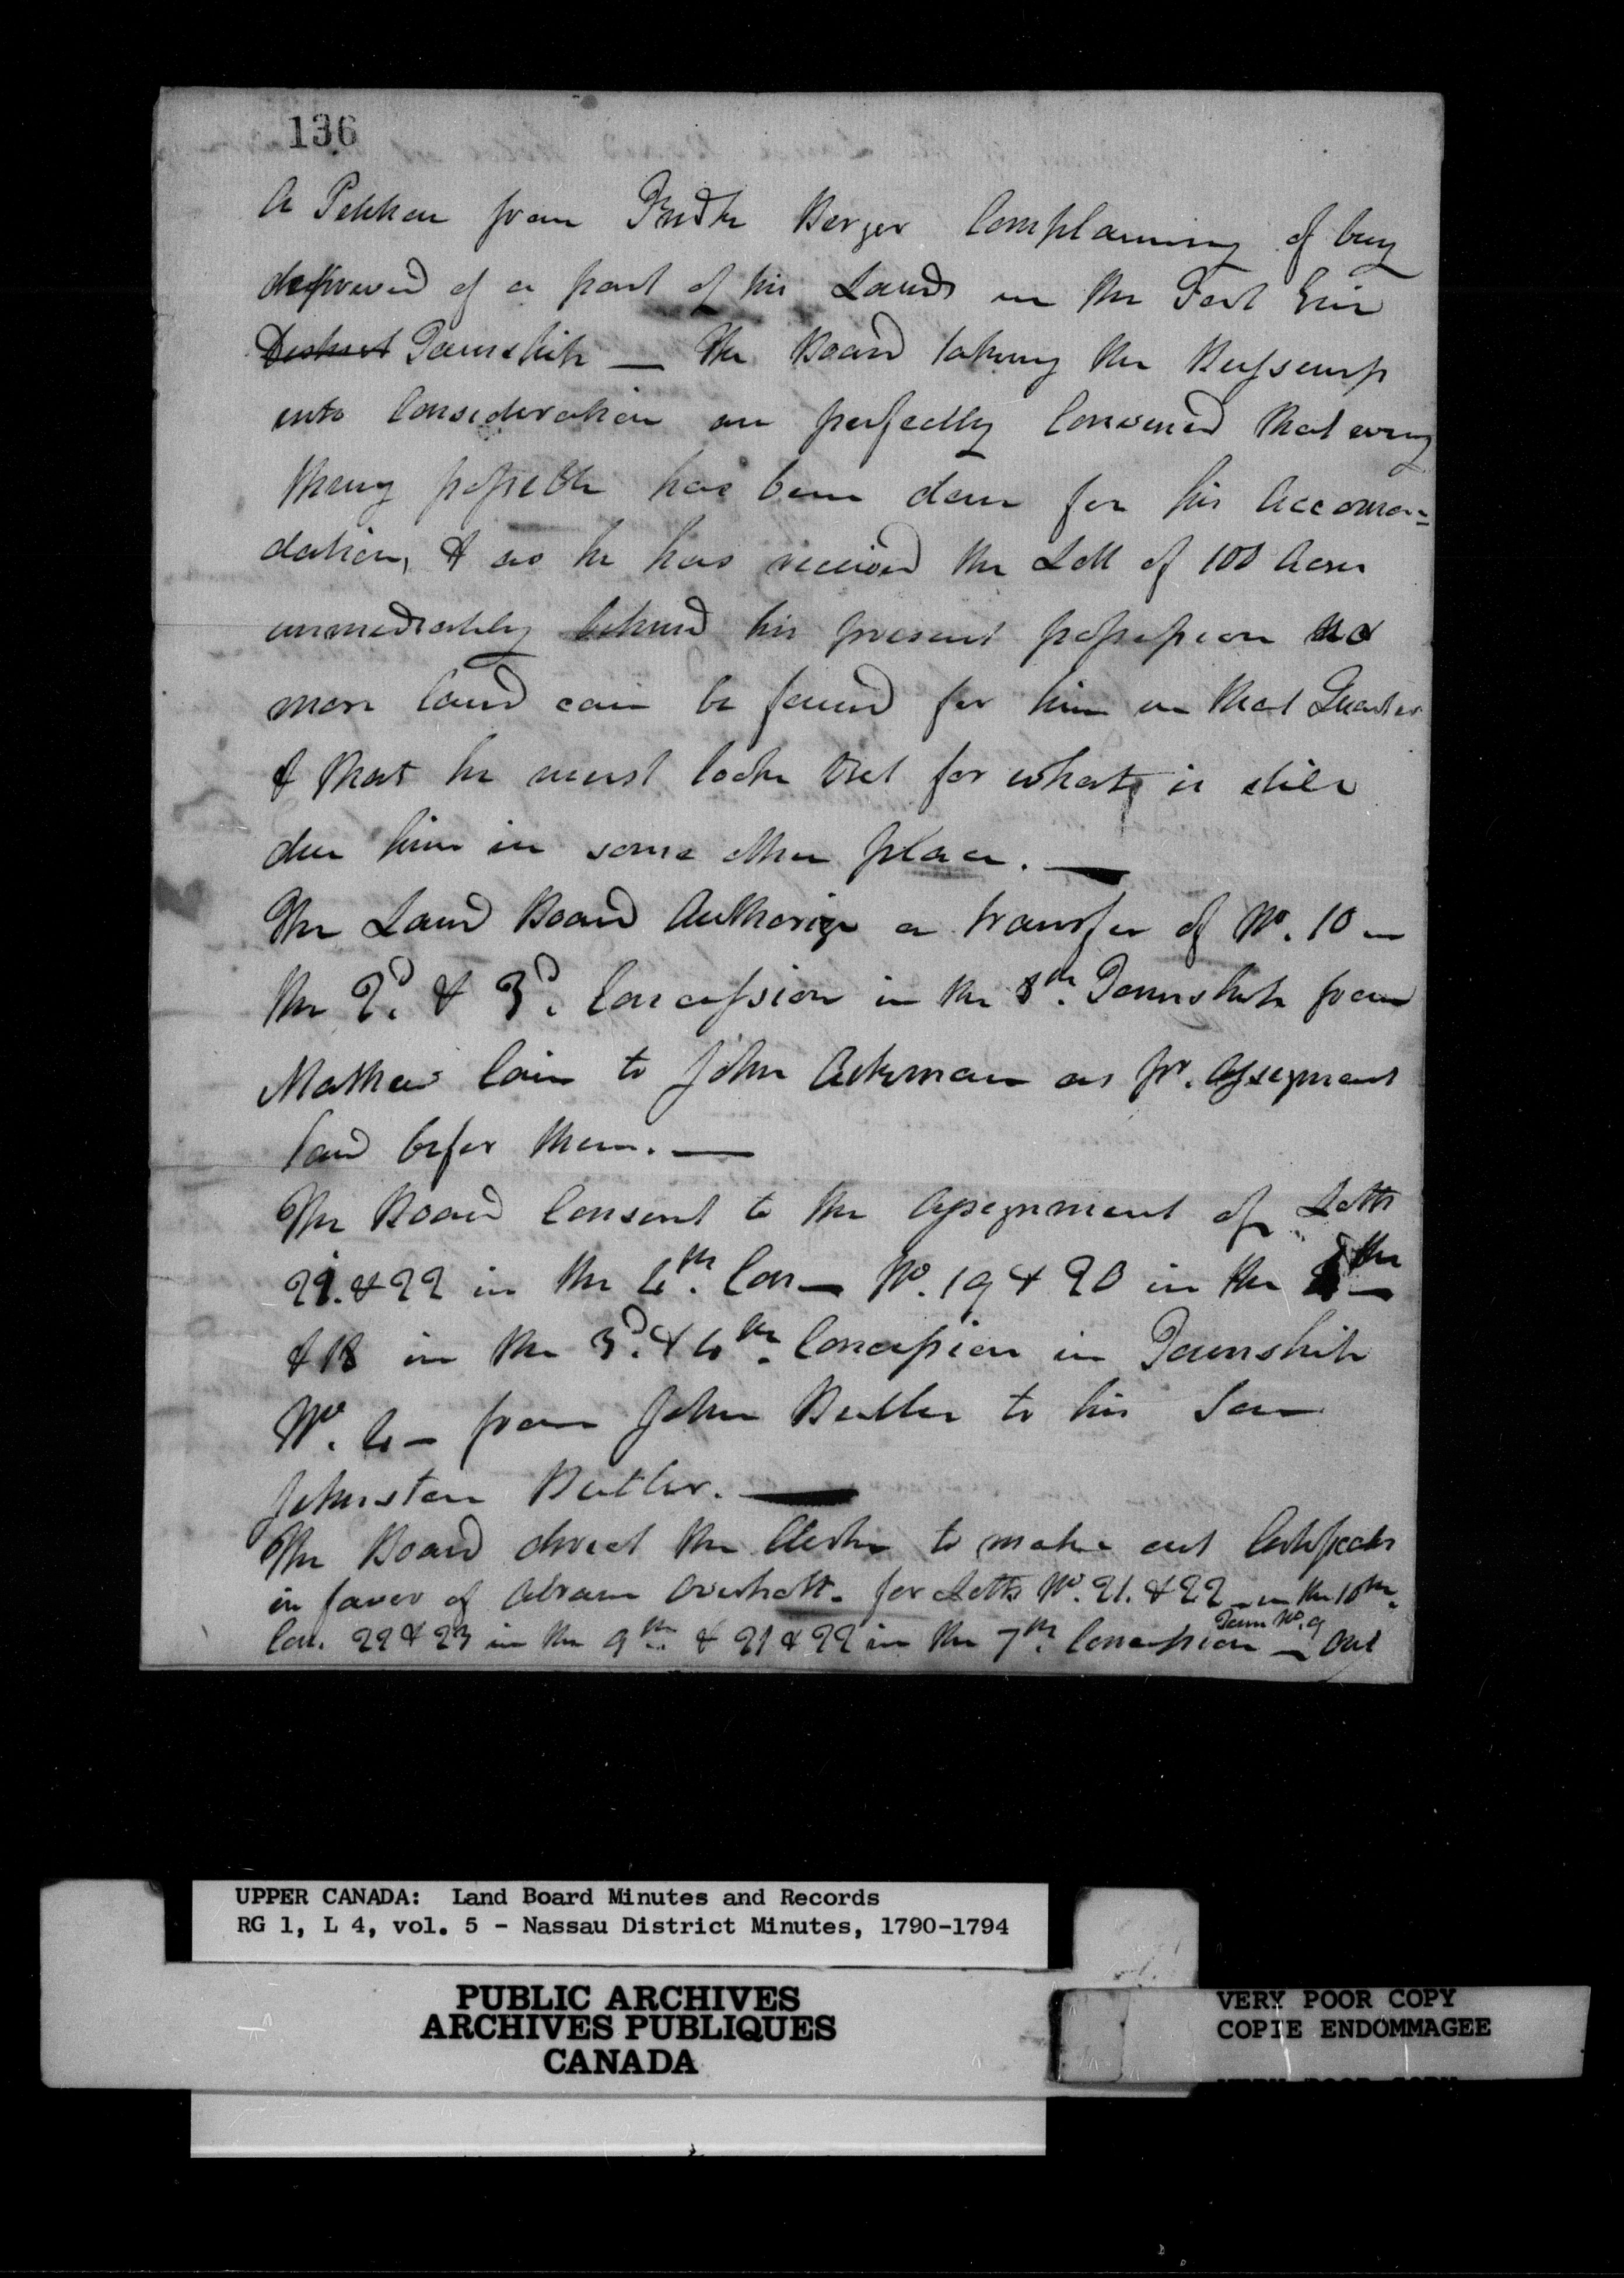 136
A Petition from Fredk Berger Complaining of being
deprived of a part of his Lands in the Fort Erie
District Township — The Board taking the Bussiness
into Consideration are perfectly Convinced that every
thing possible has been done for his Accomo=
dation, & as he has received the Lott of 100 Acres
immediately behind his present possession no
more land can be found for him in that Quarter
& that he must look out for what is still
due him in some other place. —
The Land Board Authorize a transfer of No. 10 in
the 2d. & 3d. Concession in the 8th. Township from
Mathew Cain to John Ackman as pr. Assignment
laid before them. —
The Board Consent to the Assignment of Lotts
21. & 22 in the 4th. Con — No. 19 & 20 in the
& 18 in the 3d. & 4th. Concession in Township
No. 4 — from John Butler to his Son
Johnston Butler. —
The Board direct the Clerk to make out Certificates
in favor of Abram Overholt. for Lotts No. 21. & 22 — in the 10th.
Con. 22 & 23 in the 9th. & 21 & 22 in the 7th. Concession Town No. 9 — and
UPPER CANADA: Land Board Minutes and Records
RG 1, L 4, vol. 5 - Nassau District Minutes, 1790-1794
PUBLIC ARCHIVES
ARCHIVES PUBLIQUES
CANADA
VERY POOR COPY
COPIE ENDOMMAGEE